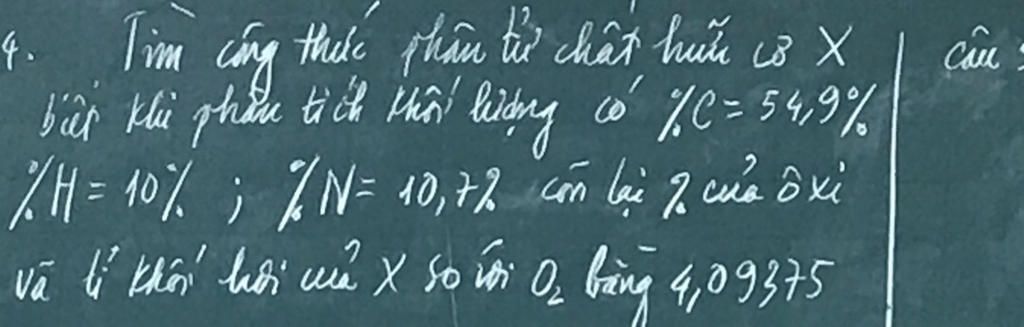 4. Tìm công thức phân tử chất hữu cơ X
câu
biết khi phân tích khối lượng có %C = 54,9%
%H = 10% ; %N = 10,7% còn lại % của ôxi
và tỉ khối hơi của X so với O₂ bằng 4,09375